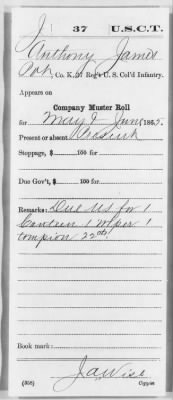 J 37 U.S.C.T.
Anthony James
Co. K, 37 Reg't U. S. Col'd Infantry.
Appears on
Company Muster Roll
for May & June, 1865.
Present or absent Present
Stoppage, $ 100 for
Due Gov't, $ 100 for
Remarks: Due US for 1
Canteen 1 Wiper 1
tompion 22cts
Book mark:
J A Wise
(358) Copyist.